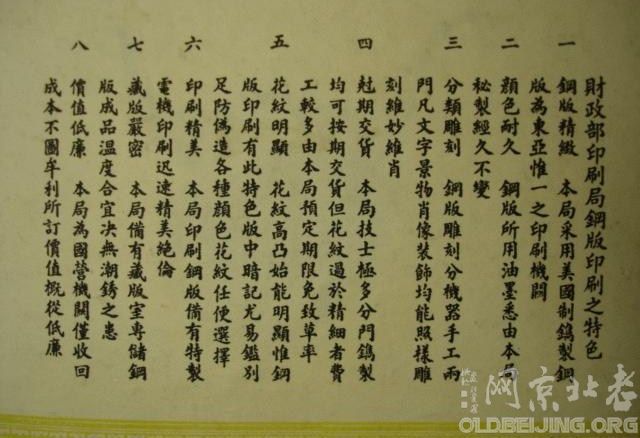 財政部印刷局鋼版印刷之特色
一 鋼版精緻 本局采用美國制鐫製鋼
版為東亞惟一之印刷機關
二 顏色耐久 鋼版所用油墨悉由本局
秘製經久不變
三 分類雕刻 鋼版雕刻分機器手工兩
門凡文字景物肖像裝飾均能照樣雕
刻維妙維肖
四 尅期交貨 本局技士極多分門鐫製
均可按期交貨但花紋過於精細者費
工較多由本局預定期限免致草率
五 花紋明顯 花紋高凸始能明顯惟鋼
版印刷有此特色版中暗記尤易鑑別
足防偽造各種顏色花紋任便選擇
六 印刷精美 本局印刷鋼版備有特製
電機印刷迅速精美絕倫
七 藏版嚴密 本局備有藏版室專儲鋼
版成品溫度合宜决無潮銹之患
八 價值低廉 本局為國營機關僅收回
成本不圖牟利所訂價值概從低廉
老北京網
OLDBEIJING.ORG